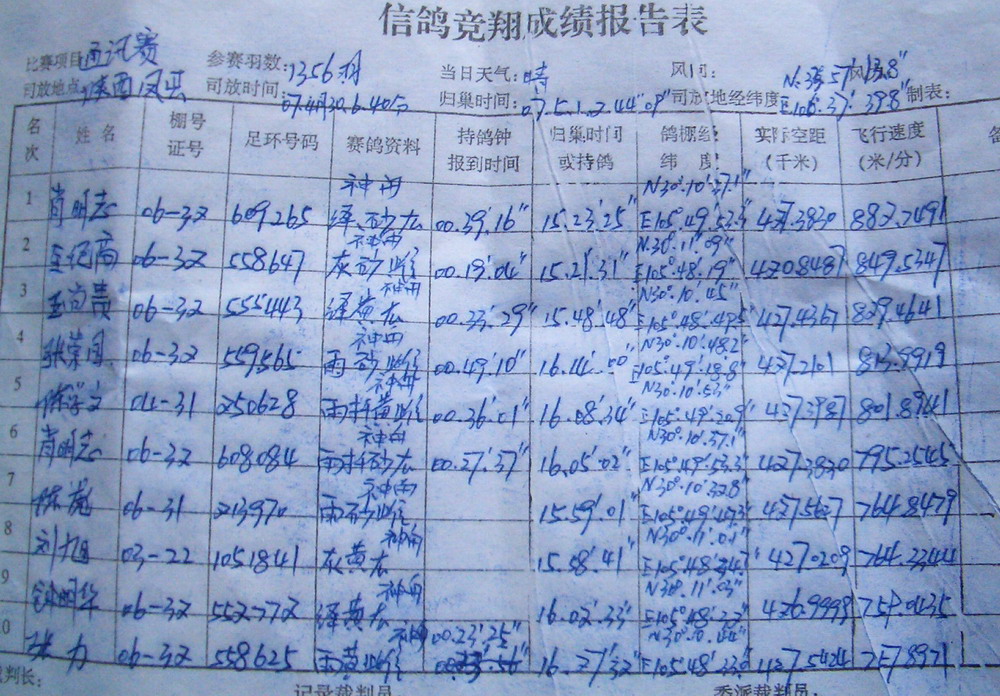 信鸽竞翔成绩报告表
比赛项目 通讯赛 参赛羽数: 1356羽 当日天气: 晴 风向: N.33°.57'13.8"
司放地点: 陕西凤 司放时间: 07.4月30.6.40分 归巢时间: 07.5.1.2.44"09" 司放地经纬度 E.106°.37'.39.8" 制表:
名次 姓名 棚号证号 足环号码 赛鸽资料 持鸽钟报到时间 归巢时间或持鸽 鸽棚经纬度 实际空距(千米) 飞行速度(米/分)
神舟 N30°.10'.37.1"
1 肖明志 06-32 609265 绛砂左 00.39'.16" 15.23'.25" E105°.49'.53.3" 427.3830 882.7491
神舟 N.30°.11'.09"
2 06-32 558647 灰砂 00.19.04" 15.21'.31" E105°.48'.19" 849.5347
神舟 N30°.10'.45"
3 06-32 555443 绛黄左 00.33'.29" 15.48'.48" E105°.48'.49.5" 427.4367 829.4641
神舟 N30°.10'.48.2"
4 张荣国 06-32 559565 雨砂 00.49'.10" 16.14'.00" E105°.49'.18.8" 427.2101 813.9919
神舟 N30°.10'.53"
5 陈学文 04-31 250628 雨 黄 00.36'.01" 16.08'.34" E105°.49'.20.9" 427.3987 801.8941
神舟 N30°.10'.37.1"
6 肖明志 06-32 608084 雨 砂左 00.27'.37" 16.05'.02" E105°.49'.53.3" 427.3830 795.2545
神舟 N30°.10'.32.8"
7 陈彪 06-31 213970 雨砂 15.59'.01" E105°.49'.47.3" 427.5627 764.8479
神舟 N30°.11'.01"
8 刘旭 03-22 1051841 灰黄左 15.58'.41" E105°.48'.24.1" 427.0209 764.2344
神舟 N30°.11'.03"
9 钟明华 06-32 552772 绛黄左 16.02'.33" E105°.48'.32" 426.9999
神舟 00.23'.25" N30°.10'.44"
0 张力 06-32 558625 雨黄 16.27'.32" E105°.48' 427.5424 757.8971
裁判长: 记录裁判员 委派裁判员